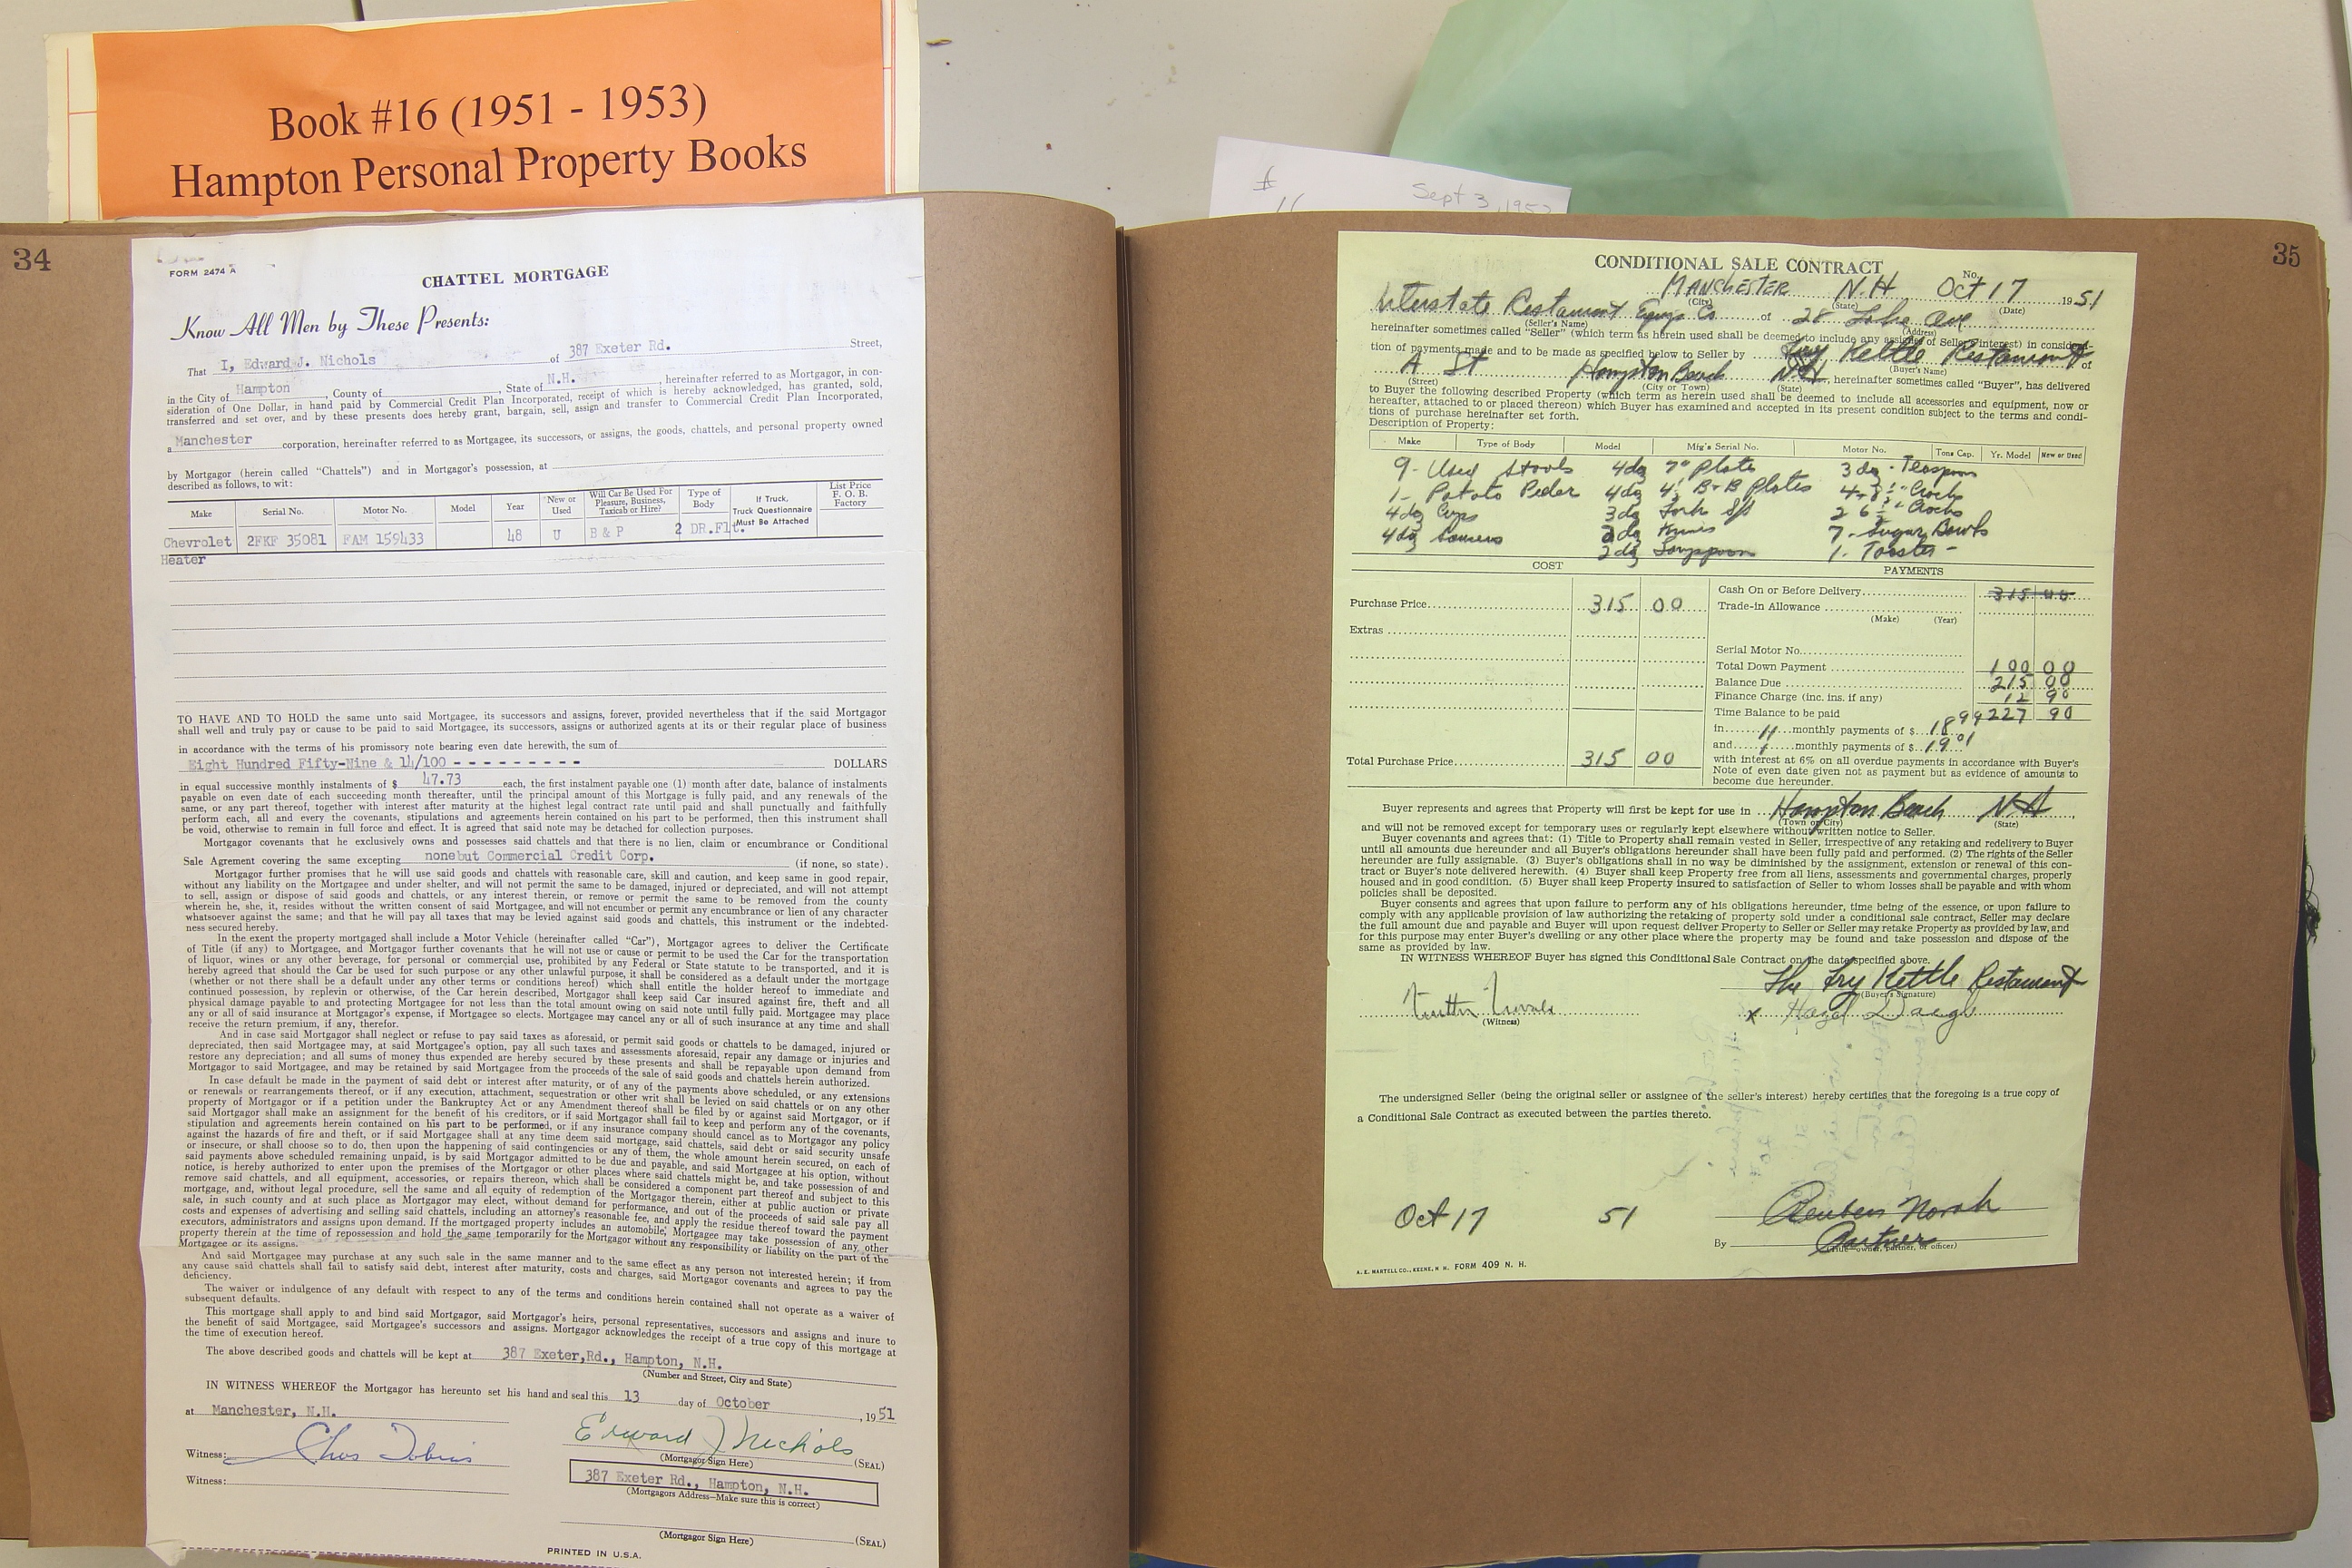 Book #16 (1951 - 1953)
Hampton Personal Property Books
Sept 3, 1952
34
FORM 2474 A
CHATTEL MORTGAGE
Know All Men by These Presents:
That I, Edward J. Nichols of 387 Exeter Rd. Street,
in the City of Hampton, County of , State of N.H. , hereinafter referred to as Mortgagor, in con-
sideration of One Dollar, in hand paid by Commercial Credit Plan Incorporated, receipt of which is hereby acknowledged, has granted, sold,
transferred and set over, and by these presents does hereby grant, bargain, sell, assign and transfer to Commercial Credit Plan Incorporated,
a Manchester corporation, hereinafter referred to as Mortgagee, its successors, or assigns, the goods, chattels, and personal property owned
by Mortgagor (herein called "Chattels") and in Mortgagor's possession, at
described as follows, to wit:
Make Serial No. Motor No. Model Year New or Used Will Car Be Used For Pleasure, Business, Taxicab or Hire? Type of Body If Truck, Truck Questionnaire Must Be Attached List Price F. O. B. Factory
Chevrolet 2FKF 35081 FAM 159433 48 U B & P 2 DR.Flt.
Heater
TO HAVE AND TO HOLD the same unto said Mortgagee, its successors and assigns, forever, provided nevertheless that if the said Mortgagor
shall well and truly pay or cause to be paid to said Mortgagee, its successors, assigns or authorized agents at its or their regular place of business
in accordance with the terms of his promissory note bearing even date herewith, the sum of
Eight Hundred Fifty-Nine & 14/100 - - - - - - - - - DOLLARS
in equal successive monthly instalments of $ 47.73 each, the first instalment payable one (1) month after date, balance of instalments
payable on even date of each succeeding month thereafter, until the principal amount of this Mortgage is fully paid, and any renewals of the
same, or any part thereof, together with interest after maturity at the highest legal contract rate until paid and shall punctually and faithfully
perform each, all and every the covenants, stipulations and agreements herein contained on his part to be performed, then this instrument shall
be void, otherwise to remain in full force and effect. It is agreed that said note may be detached for collection purposes.
Mortgagor covenants that he exclusively owns and possesses said chattels and that there is no lien, claim or encumbrance or Conditional
Sale Agreement covering the same excepting none but Commercial Credit Corp. (if none, so state).
Mortgagor further promises that he will use said goods and chattels with reasonable care, skill and caution, and keep same in good repair,
without any liability on the Mortgagee and under shelter, and will not permit the same to be damaged, injured or depreciated, and will not attempt
to sell, assign or dispose of said goods and chattels, or any interest therein, or remove or permit the same to be removed from the county
wherein he, she, it, resides without the written consent of said Mortgagee, and will not encumber or permit any encumbrance or lien of any character
whatsoever against the same; and that he will pay all taxes that may be levied against said goods and chattels, this instrument or the indebted-
ness secured hereby.
In the exent the property mortgaged shall include a Motor Vehicle (hereinafter called "Car"), Mortgagor agrees to deliver the Certificate
of Title (if any) to Mortgagee, and Mortgagor further covenants that he will not use or cause or permit to be used the Car for the transportation
of liquor, wines or any other beverage, for personal or commercial use, prohibited by any Federal or State statute to be transported, and it is
hereby agreed that should the Car be used for such purpose or any other unlawful purpose, it shall be considered as a default under the mortgage
(whether or not there shall be a default under any other terms or conditions hereof) which shall entitle the holder hereof to immediate and
continued possession, by replevin or otherwise, of the Car herein described, Mortgagor shall keep said Car insured against fire, theft and all
physical damage payable to and protecting Mortgagee for not less than the total amount owing on said note until fully paid. Mortgagee may place
any or all of said insurance at Mortgagor's expense, if Mortgagee so elects. Mortgagee may cancel any or all of such insurance at any time and shall
receive the return premium, if any, therefor.
And in case said Mortgagor shall neglect or refuse to pay said taxes as aforesaid, or permit said goods or chattels to be damaged, injured or
depreciated, then said Mortgagee may, at said Mortgagee's option, pay all such taxes and assessments aforesaid, repair any damage or injuries and
restore any depreciation; and all sums of money thus expended are hereby secured by these presents and shall be repayable upon demand from
Mortgagor to said Mortgagee, and may be retained by said Mortgagee from the proceeds of the sale of said goods and chattels herein authorized.
In case default be made in the payment of said debt or interest after maturity, or of any of the payments above scheduled, or any extensions
or renewals or rearrangements thereof, or if any execution, attachment, sequestration or other writ shall be levied on said chattels or on any other
property of Mortgagor or if a petition under the Bankruptcy Act or any Amendment thereof shall be filed by or against said Mortgagor, or if
said Mortgagor shall make an assignment for the benefit of his creditors, or if said Mortgagor shall fail to keep and perform any of the covenants,
stipulation and agreements herein contained on his part to be performed, or if any insurance company should cancel as to Mortgagor any policy
against the hazards of fire and theft, or if said Mortgagee shall at any time deem said mortgage, said chattels, said debt or said security unsafe
or insecure, or shall choose so to do, then upon the happening of said contingencies or any of them, the whole amount herein secured, on each of
said payments above scheduled remaining unpaid, is by said Mortgagor admitted to be due and payable, and said Mortgagee at his option, without
notice, is hereby authorized to enter upon the premises of the Mortgagor or other places where said chattels might be, and take possession of and
remove said chattels, and all equipment, accessories, or repairs thereon, which shall be considered a component part thereof and subject to this
mortgage, and, without legal procedure, sell the same and all equity of redemption of the Mortgagor therein, either at public auction or private
sale, in such county and at such place as Mortgagor may elect, without demand for performance, and out of the proceeds of said sale pay all
costs and expenses of advertising and selling said chattels, including an attorney's reasonable fee, and apply the residue thereof toward the payment
executors, administrators and assigns upon demand. If the mortgaged property includes an automobile, Mortgagee may take possession of any other
property therein at the time of repossession and hold the same temporarily for the Mortgagor without any responsibility or liability on the part of the
Mortgagee or its assigns.
And said Mortgagee may purchase at any such sale in the same manner and to the same effect as any person not interested herein; if from
any cause said chattels shall fail to satisfy said debt, interest after maturity, costs and charges, said Mortgagor covenants and agrees to pay the
deficiency.
The waiver or indulgence of any default with respect to any of the terms and conditions herein contained shall not operate as a waiver of
subsequent defaults.
This mortgage shall apply to and bind said Mortgagor, said Mortgagor's heirs, personal representatives, successors and assigns and inure to
the benefit of said Mortgagee, said Mortgagee's successors and assigns. Mortgagor acknowledges the receipt of a true copy of this mortgage at
the time of execution hereof.
The above described goods and chattels will be kept at 387 Exeter,Rd., Hampton, N.H.
(Number and Street, City and State)
IN WITNESS WHEREOF the Mortgagor has hereunto set his hand and seal this 13 day of October , 1951
at Manchester, N.H.
Witness: Chas Tobin Edward J Nichols (SEAL)
(Mortgagor Sign Here)
Witness: 387 Exeter Rd., Hampton, N.H.
(Mortgagors Address—Make sure this is correct)
(SEAL)
(Mortgagor Sign Here)
PRINTED IN U.S.A.
35
CONDITIONAL SALE CONTRACT
No.
MANCHESTER N.H Oct 17 1951
(City) (State) (Date)
Interstate Restaurant Equip Co of 28 Lake Ave
(Seller's Name) (Address)
hereinafter sometimes called "Seller" (which term as herein used shall be deemed to include any assignee of Seller's interest) in considera-
tion of payments made and to be made as specified below to Seller by Fry Kettle Restaurant of
(Buyer's Name)
A St Hampton Beach N.H, hereinafter sometimes called "Buyer", has delivered
(Street) (City or Town) (State)
to Buyer the following described Property (which term as herein used shall be deemed to include all accessories and equipment, now or
hereafter, attached to or placed thereon) which Buyer has examined and accepted in its present condition subject to the terms and condi-
tions of purchase hereinafter set forth.
Description of Property:
Make Type of Body Model Mfg's Serial No. Motor No. Tons Cap. Yr. Model New or Used
9- Used Stools 4dz 7" Plates 3 dz - Teaspoons
1- Potato Peeler 4dz 4½ B+B Plates 4-8½" Crocks
4dz Cups 3dz Forks 2 6½" Crocks
4dz Saucers 2dz Knives 7- Sugar Bowls
2dz Soupspoon 1- Toaster -
COST PAYMENTS
Purchase Price 315 00 Cash On or Before Delivery 315 00
Trade-in Allowance
(Make) (Year)
Extras
Serial Motor No.
Total Down Payment 100 00
Balance Due 215 00
Finance Charge (inc. ins. if any) 12 90
Time Balance to be paid 227 90
in 11 monthly payments of $ 18 99
and 1 monthly payments of $ 19 01
Total Purchase Price 315 00 with interest at 6% on all overdue payments in accordance with Buyer's
Note of even date given not as payment but as evidence of amounts to
become due hereunder.
Buyer represents and agrees that Property will first be kept for use in Hampton Beach N.H,
(Town or City) (State)
and will not be removed except for temporary uses or regularly kept elsewhere without written notice to Seller.
Buyer covenants and agrees that: (1) Title to Property shall remain vested in Seller, irrespective of any retaking and redelivery to Buyer
until all amounts due hereunder and all Buyer's obligations hereunder shall have been fully paid and performed. (2) The rights of the Seller
hereunder are fully assignable. (3) Buyer's obligations shall in no way be diminished by the assignment, extension or renewal of this con-
tract or Buyer's note delivered herewith. (4) Buyer shall keep Property free from all liens, assessments and governmental charges, properly
housed and in good condition. (5) Buyer shall keep Property insured to satisfaction of Seller to whom losses shall be payable and with whom
policies shall be deposited.
Buyer consents and agrees that upon failure to perform any of his obligations hereunder, time being of the essence, or upon failure to
comply with any applicable provision of law authorizing the retaking of property sold under a conditional sale contract, Seller may declare
the full amount due and payable and Buyer will upon request deliver Property to Seller or Seller may retake Property as provided by law, and
for this purpose may enter Buyer's dwelling or any other place where the property may be found and take possession and dispose of the
same as provided by law.
IN WITNESS WHEREOF Buyer has signed this Conditional Sale Contract on the date specified above.
The Fry Kettle Restaurant
(Buyer's Signature)
(Witness) x Hazel
The undersigned Seller (being the original seller or assignee of the seller's interest) hereby certifies that the foregoing is a true copy of
a Conditional Sale Contract as executed between the parties thereto.
Oct 17 51 Reuben Novak
By Partner
(Title—owner, partner, or officer)
A. E. MARTELL CO., KEENE, N. H. FORM 409 N. H.